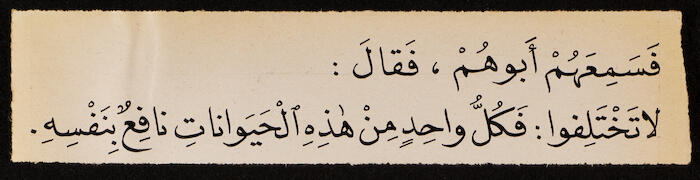 فَسَمِعَهُمْ أَبوهُمْ ، فَقالَ :
لا تَخْتَلِفوا : فَكُلُّ واحِدٍ مِنْ هٰذِهِ ٱلْحَيَوَاناتِ نافِعٌ بِنَفْسِهِ .